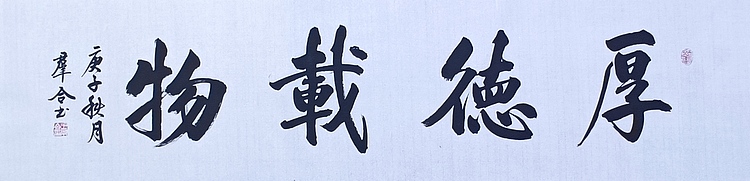 厚德載物
庚子秋月
羣合书